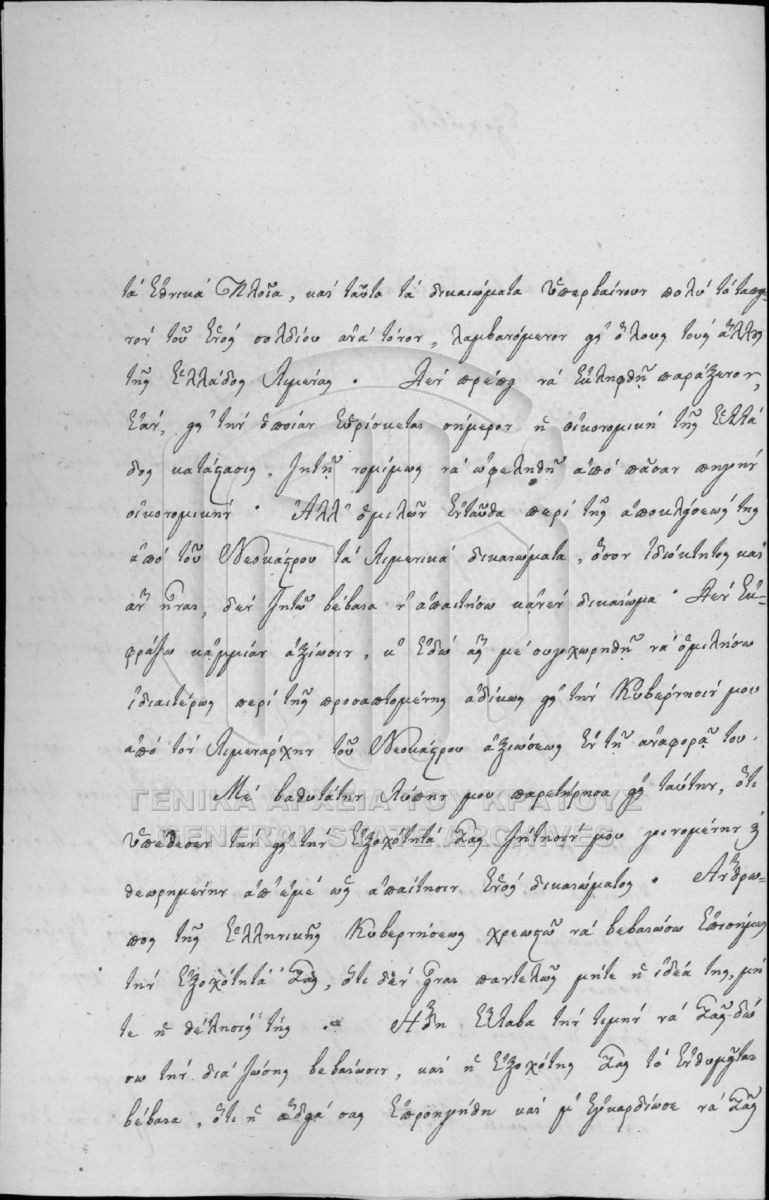 τὰ Ἐθνικὰ Πλοῖα, καὶ ταῦτα τὰ δικαιώματα ὑπερβαίνουν πολὺ τὸ ταπει-
νὸν τοῦ ἑνὸς σολδίου ἀνὰ τόνον, λαμβανόμενον εἰς ὅλους τοὺς ἄλλους
τῆς Ἑλλάδος Λιμένας. Δὲν πρέπει νὰ ἐκληφθῇ παράξενον,
ἐὰν, εἰς τὴν ὁποίαν εὑρίσκεται σήμερον ἡ οἰκονομικὴ τῆς Ἑλλά
δος κατάστασις, ζητῇ νομίμως νὰ ὠφεληθῇ ἀπὸ πᾶσαν πηγὴν
οἰκονομικήν. Ἀλλ' ὁμιλῶν ἐνταῦθα περὶ τῆς ἀποκλείσεώς της
ἀπὸ τοῦ Νεοκάστρου τὰ Λιμενικὰ δικαιώματα, ὅσον ἰδιόκτητος καὶ
ἂν ἦναι, δὲν ζητῶ βέβαια ν' ἀπαιτήσω κἀνὲν δικαίωμα. Δὲν ἐκ-
φράζω κἀμμίαν ἀξίωσιν, κ' ἐδῶ ἂς μὲ συγχωρηθῇ νὰ ὁμιλήσω
ἰδιαιτέρως περὶ τῆς προσαπτομένης ἀδίκως εἰς τὴν Κυβέρνησίν μου
ἀπὸ τὸν Λιμενάρχην τοῦ Νεοκάστρου ἀξιώσεως ἐν τῇ ἀναφορᾷ του.
Μὲ βαθυτάτην λύπην μου παρετήρησα εἰς ταύτην, ὅτι
ὑπέθεσεν τὴν εἰς τὴν Ἐξοχότητά Σας ζήτησίν μου γενομένην ἢ
θεωρημένην ἀπ' ἐμὲ ὡς ἀπαίτησιν ἑνὸς δικαιώματος. Ἄνθρω-
πος τῆς Ἑλληνικῆς Κυβερνήσεως χρεωστῶ νὰ βεβαιώσω ἐπισήμως
τὴν Ἐξοχότητά Σας, ὅτι δὲν ἦναι παντελῶς μήτε ἡ ἰδέα της, μή
τε ἡ θέλησίς της. Ἤδη ἔλαβα τὴν τιμὴν νὰ Σᾶς δώ
σω τὴν διὰ ζώσης βεβαίωσιν, καὶ ἡ Ἐξοχότης Σας τὸ ἐνθυμεῖται
βέβαια, ὅτι ἡ ἄδειά σας ἐπροηγήθη καὶ μ' ἐγκαρδίωσε νὰ Σᾶς
ΓΕΝΙΚΑ ΑΡΧΕΙΑ ΤΟΥ ΚΡΑΤΟΥΣ
GENERAL STATE ARCHIVES